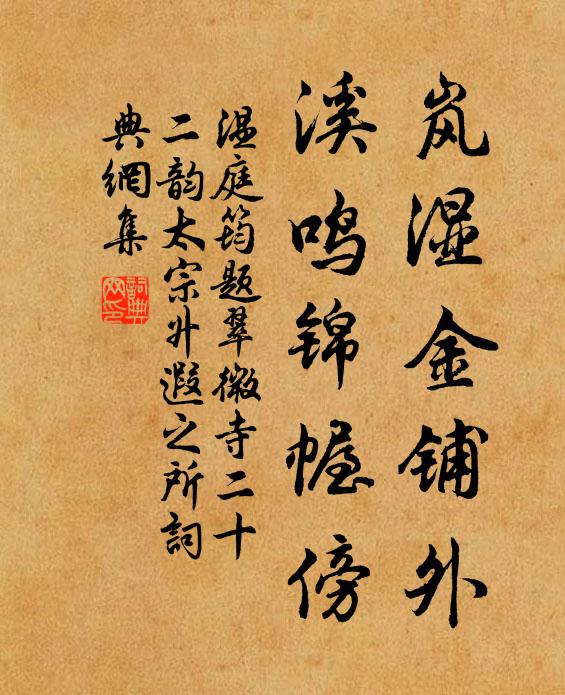 岚湿金铺外
溪鸣锦幄傍
温庭筠题翠微寺二十
二韵太宗升遐之所詞
典網集
詞典
网印